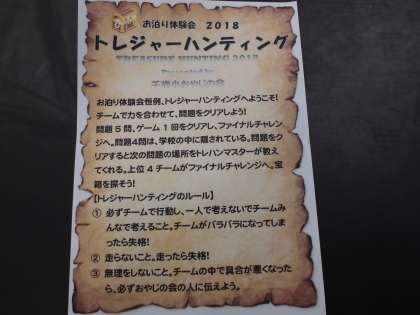 お泊り体験会 2018
トレジャーハンティング
TREASURE HUNTING 2018
Presented by
千歳小おやじの会
お泊り体験会恒例、トレジャーハンティングへようこそ!
チームで力を合わせて、問題をクリアしよう!
問題5問、ゲーム1回をクリアし、ファイナルチャレン
ジへ。問題4問は、学校の中に隠されている。問題をク
リアすると次の問題の場所をトレハンマスターが教え
てくれる。上位4チームがファイナルチャレンジへ。宝
箱を探そう!
【トレジャーハンティングのルール】
① 必ずチームで行動し、一人で考えないでチームみ
んなで考えること。チームがバラバラになってしま
ったら失格!
② 走らないこと。走ったら失格!
③ 無理をしないこと。チームの中で具合が悪くなった
ら、必ずおやじの会の人に伝えよう。